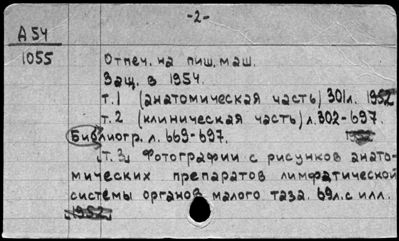 -2-
А54
1055
Отпеч. на пиш. маш.
Защ. в 1954.
т.1 (анатомическая часть) 301л. 1952
т.2 (клиническая часть) л.302-697.
Библиогр. л. 669-697.
т.3. Фотографии с рисунков анато-
мических препаратов лимфатической
системы органов малого таза. 69л. с илл.
1952